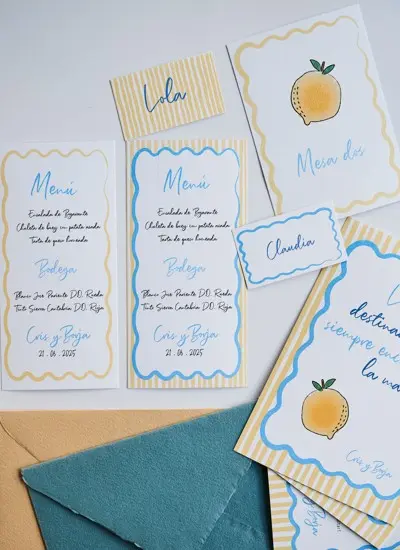 Lola
Mesa dos
Menú
Ensalada de Bogavante
Chuleta de buey con patata asada
Tarta de queso horneada
Bodega
Blanco Jose Pariente D.O. Rueda
Tinto Sierra Cantabria D.O. Rioja
Cris y Borja
21 . 06 . 2025
Menú
Ensalada de Bogavante
Chuleta de buey con patata asada
Tarta de queso horneada
Bodega
Blanco Jose Pariente D.O. Rueda
Tinto Sierra Cantabria D.O. Rioja
Cris y Borja
21 . 06 . 2025
Claudia
destina
siempre enc
la ma
Cris y Borja